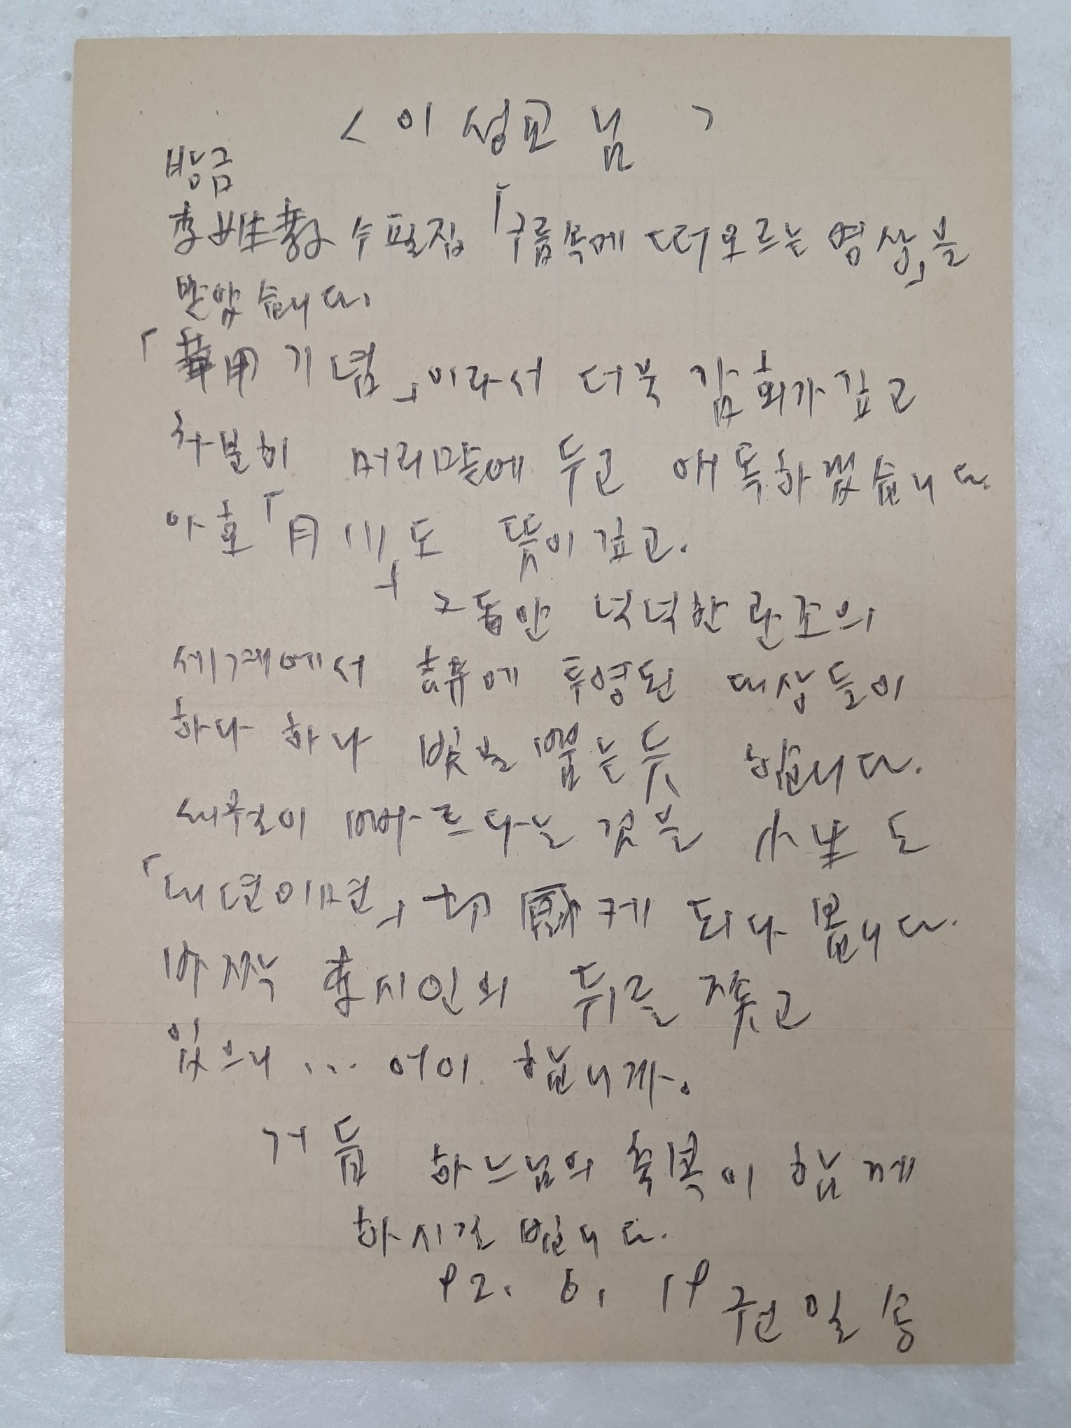 < 이성교 님 >
방금
李姓敎 수필집 「구름속에 떠오르는 영상」을
받았습니다.
「華甲기념」이라서 더욱 감회가 깊고
차분히 머리맡에 두고 애독하겠습니다
아호「月川」도 뜻이 깊고.
그동안 넉넉한 관조의
세계에서 투영된 대상들이
하나 하나 빛을 뿜는듯 합니다.
세월이 빠르다는 것을 小生도
「내년이면」 切感케 되나 봅니다.
바짝 李시인의 뒤를 쫓고
있으니... 어이 합니까.
거듭 하느님의 축복이 함께
하시길 빕니다.
92. 6. 19 권일송